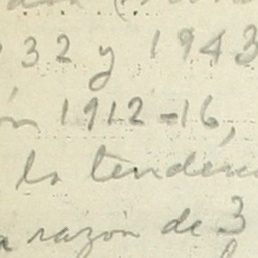 32 y 1943
1912-16,
la tendenc
razón de 3